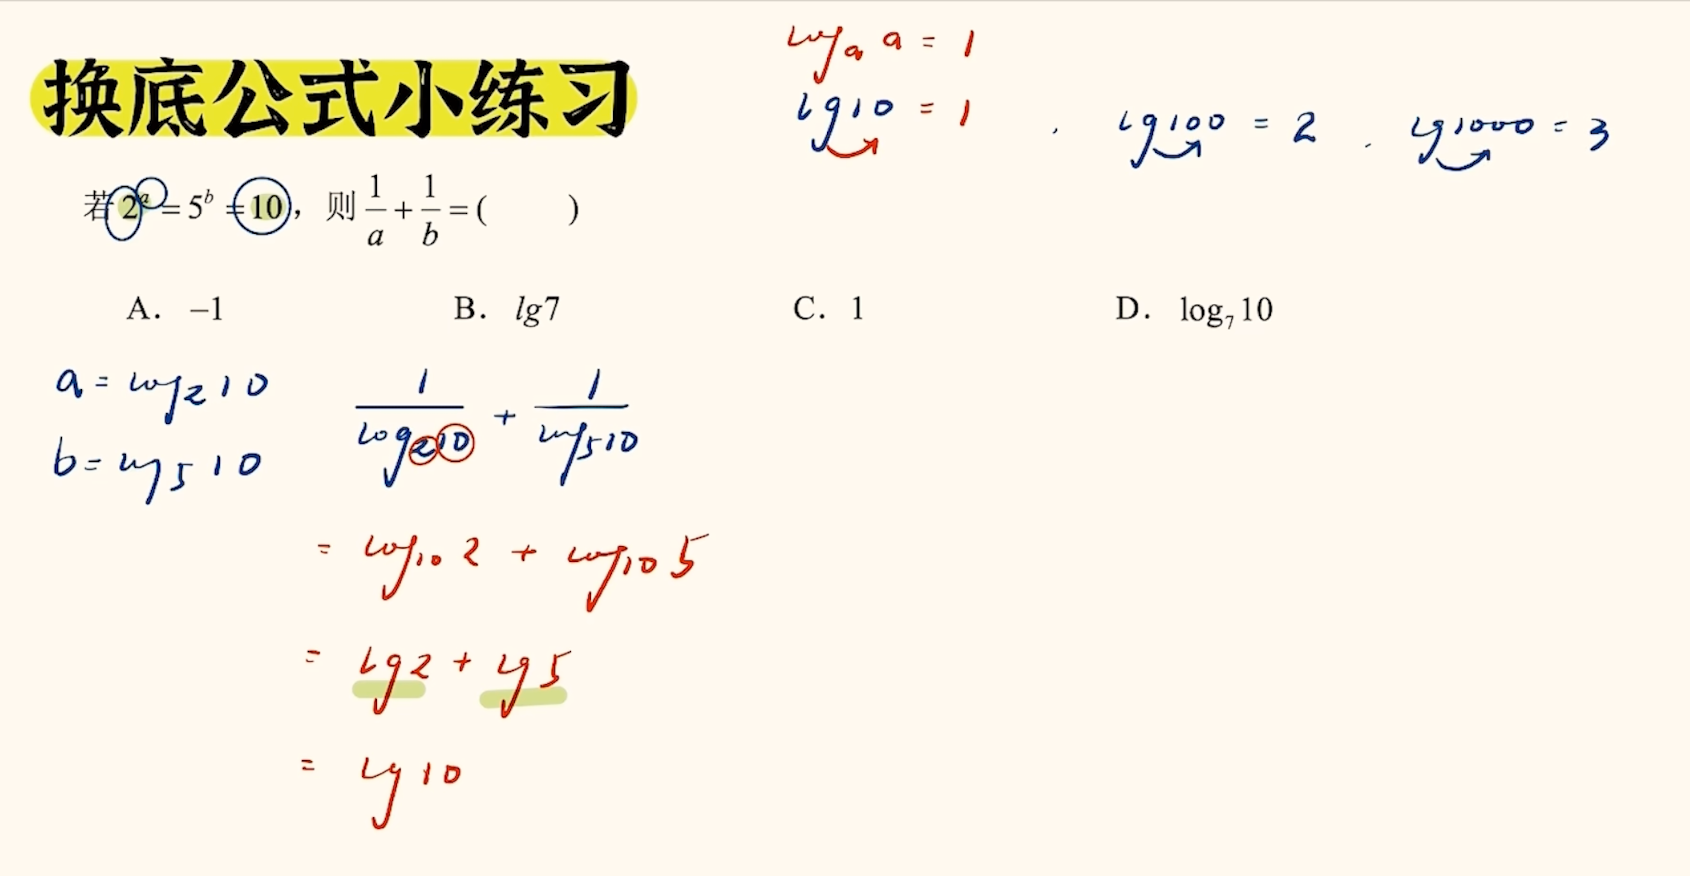 换底公式小练习
logₐ a = 1
lg10 = 1 , lg100 = 2 , lg1000 = 3
若2ᵃ=5ᵇ=10，则1/a+1/b=(　　)
A. −1　B. lg7　C. 1　D. log₇10
a = log₂10
b = log₅10
1/log₂10 + 1/log₅10
= log₁₀2 + log₁₀5
= lg2 + lg5
= lg10